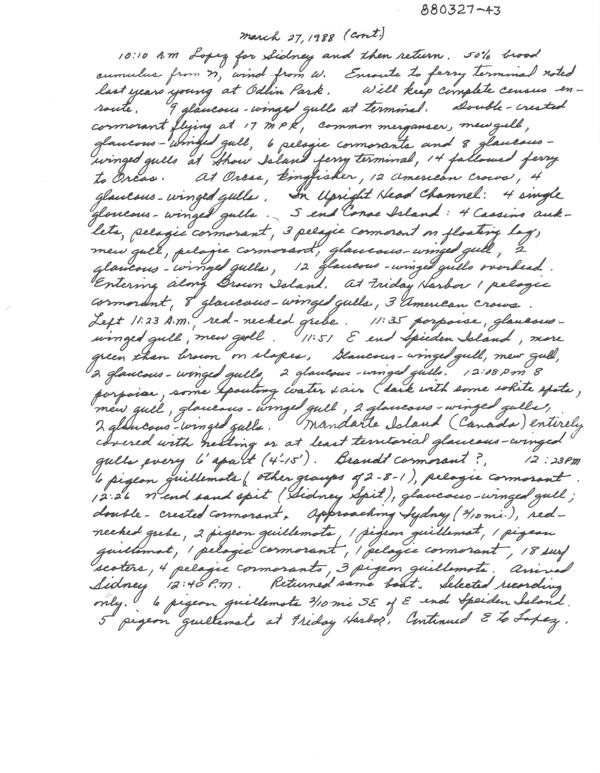 880327-43
March 27, 1988 (cont.)
10:10 A.M Lopez for Sidney and then return. 50% broad
cumulus from N, wind from W. Enroute to ferry terminal noted
last years young at Odlin Park. Will keep complete census en-
route. 9 glaucous-winged gulls at terminal. Double-crested
cormorant flying at 17 MPH, common merganser, mew gull,
glaucous-winged gull, 6 pelagic cormorants and 8 glaucous-
winged gulls at Shaw Island ferry terminal, 14 followed ferry
to Orcas. At Orcas, kingfisher, 12 American crows, 4
glaucous-winged gulls. In Upright Head Channel: 4 single
glaucous-winged gulls. S end Canoe Island: 4 Cassins auk-
lets, pelagic cormorant, 3 pelagic cormorant on floating log,
mew gull, pelagic cormorant, glaucous-winged gull, 2
glaucous-winged gulls, 12 glaucous-winged gulls overhead.
Entering along Brown Island. At Friday Harbor 1 pelagic
cormorant, 8 glaucous-winged gulls, 3 American crows.
Left 11:23 A.M., red-necked grebe. 11:35 porpoise, glaucous-
winged gull, mew gull. 11:51 E end Spieden Island, more
green than brown on slopes. Glaucous-winged gull, mew gull,
2 glaucous-winged gulls, 2 glaucous-winged gulls. 12:08 PM 8
porpoise, some spouting water & air (dark with some white spots,
mew gull, glaucous-winged gull, 2 glaucous-winged gulls,
2 glaucous-winged gulls. Mandarte Island (Canada) entirely
covered with nesting or at least territorial glaucous-winged
gulls every 6' apart (4'-15'). Brandt cormorant?, 12:23PM
6 pigeon guillemots (other groups of 2-8-1), pelagic cormorant.
12:26 N end sand spit (Sidney Spit), glaucous-winged gull;
double-crested cormorant. Approaching Sydney (3/10 mi.), red-
necked grebe, 2 pigeon guillemots, 1 pigeon guillemot, 1 pigeon
guillemot, 1 pelagic cormorant, 1 pelagic cormorant, 18 surf
scoters, 4 pelagic cormorants, 3 pigeon guillemots. Arrived
Sidney 12:40 P.M. Returned same boat. Selected recording
only. 6 pigeon guillemots 3/10 mi SE of E end Speiden Island.
5 pigeon guillemots at Friday Harbor. Continued E to Lopez.